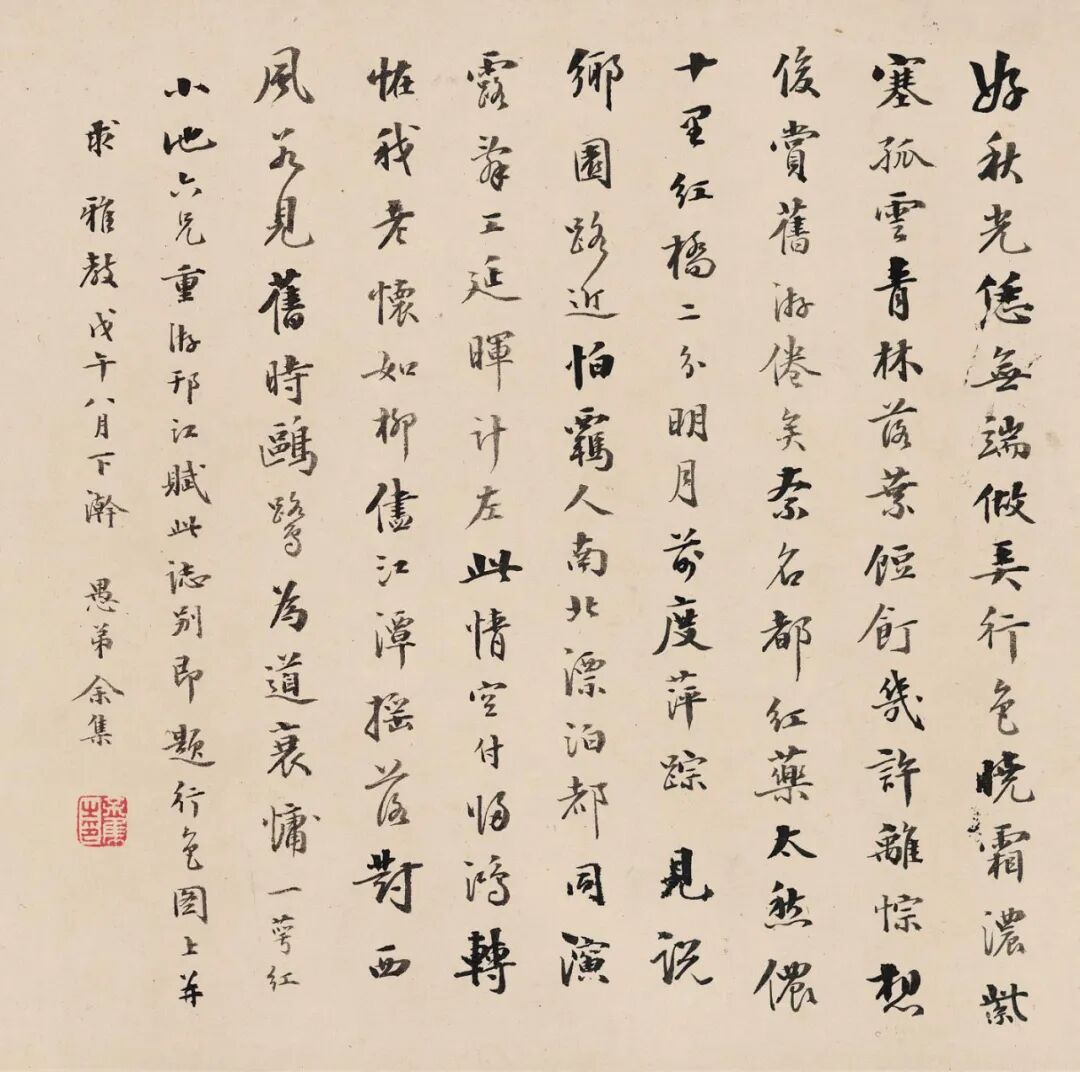 好秋光恁無端做弄行色曉霜濃紫
塞孤雲青林落葉餖飣幾許離悰想
俊賞舊游倦矣奈名都紅藥太愁儂
十里紅橋二分明月前度萍踪見說
鄉園路近怕羈人南北漂泊都同演
露辭工延暉計左此情空付歸鴻轉
恠我老懷如柳儘江潭搖落對西
風若見舊時鷗鷺為道衰慵一萼紅
小池六兄重游邗江賦此誌別即題行色圖上并
求雅教戊午八月下澣愚弟余集